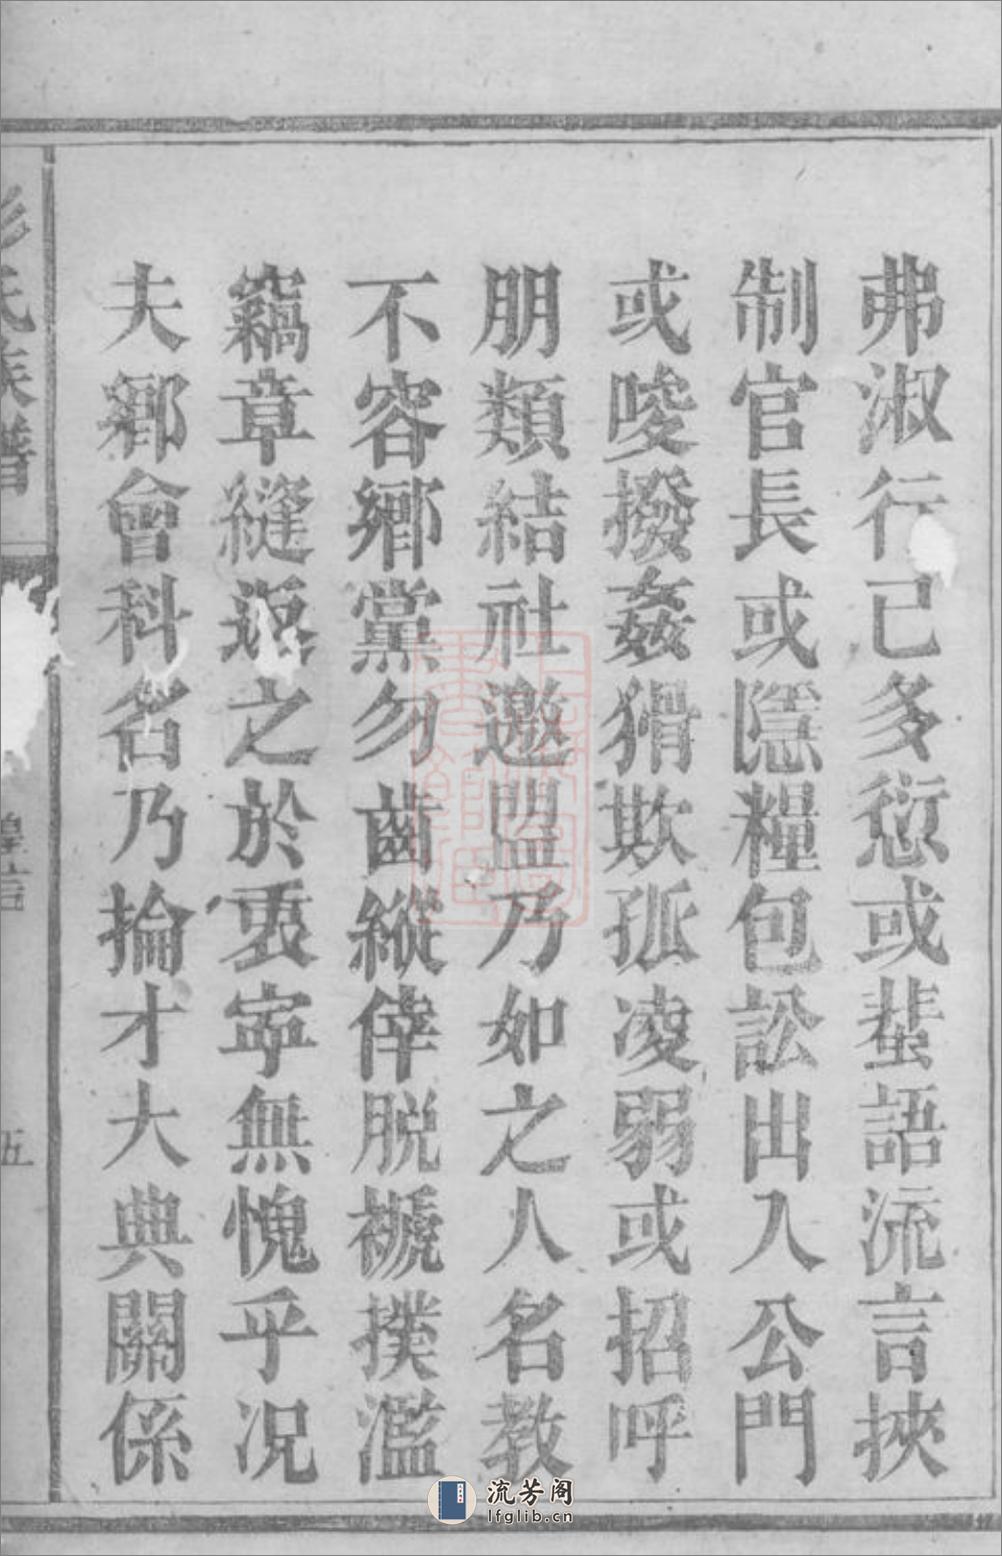 弗淑行己多愆或蜚語流言挾
制官長或隱糧包訟出入公門
或唆撥姦猾欺孤凌弱或招呼
朋類結社邀盟乃如之人名教
不容鄉黨勿齒縱倖脫褫撲濫
竊章縫返之於衷寧無愧乎況
夫鄉會科名乃掄才大典關係
彭氏族譜
五
流芳阁
lfglib.cn